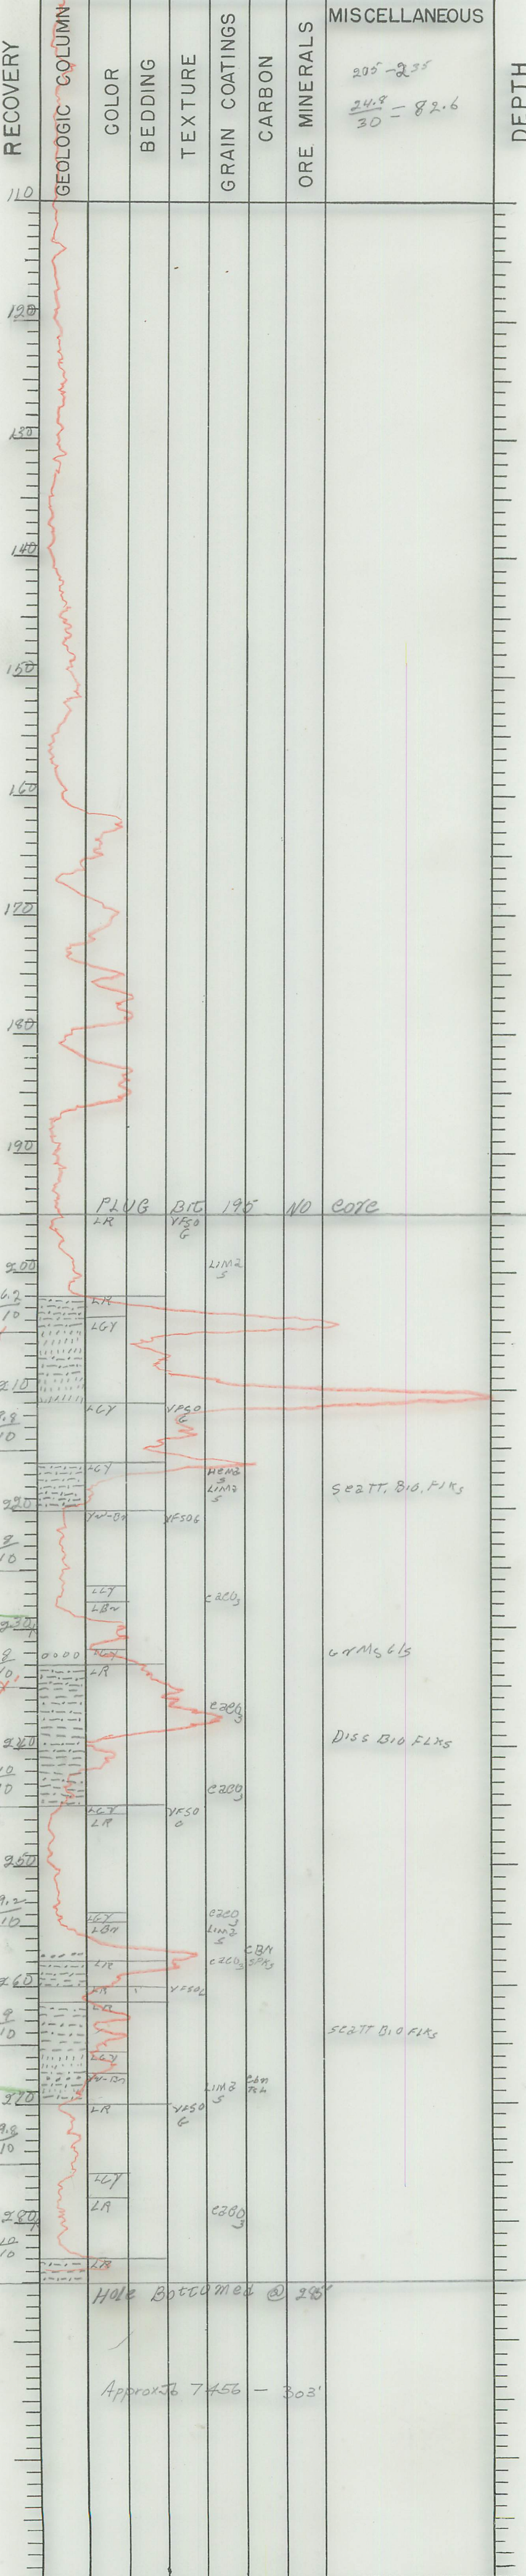 RECOVERY
GEOLOGIC COLUMN
COLOR
BEDDING
TEXTURE
GRAIN COATINGS
CARBON
ORE MINERALS
MISCELLANEOUS
DEPTH
205-235
24.8/30 = 82.6
110
120
130
140
150
160
170
180
190
PLUG Bit 195 NO core
LR VFSO
G
200 LIM2
S
6.2/10 LR
LGY
210
LGY VFSO
G
10
LGY HEM2
S
LIM2
S
Scatt. Bio. Flks
220
VFSOG
8/10
LGY CaCO3
LBr
230
8/10
LR
CaCO3
240 Diss Bio Flks
10/10
CaCO3
LGY VFSO
LR
250
9.2/10
LGY CaCO3
LBr LIM2
S
CBN
LR CaCO3 SPKS
260
LR
LR
9/10 Scatt Bio Flks
LGY
LIM2
S
270
LR VFSO
G
9.8/10
LGY
LR CaCO3
280
10/10
LR
Hole Bottomed @ 285'
7456 - 303'